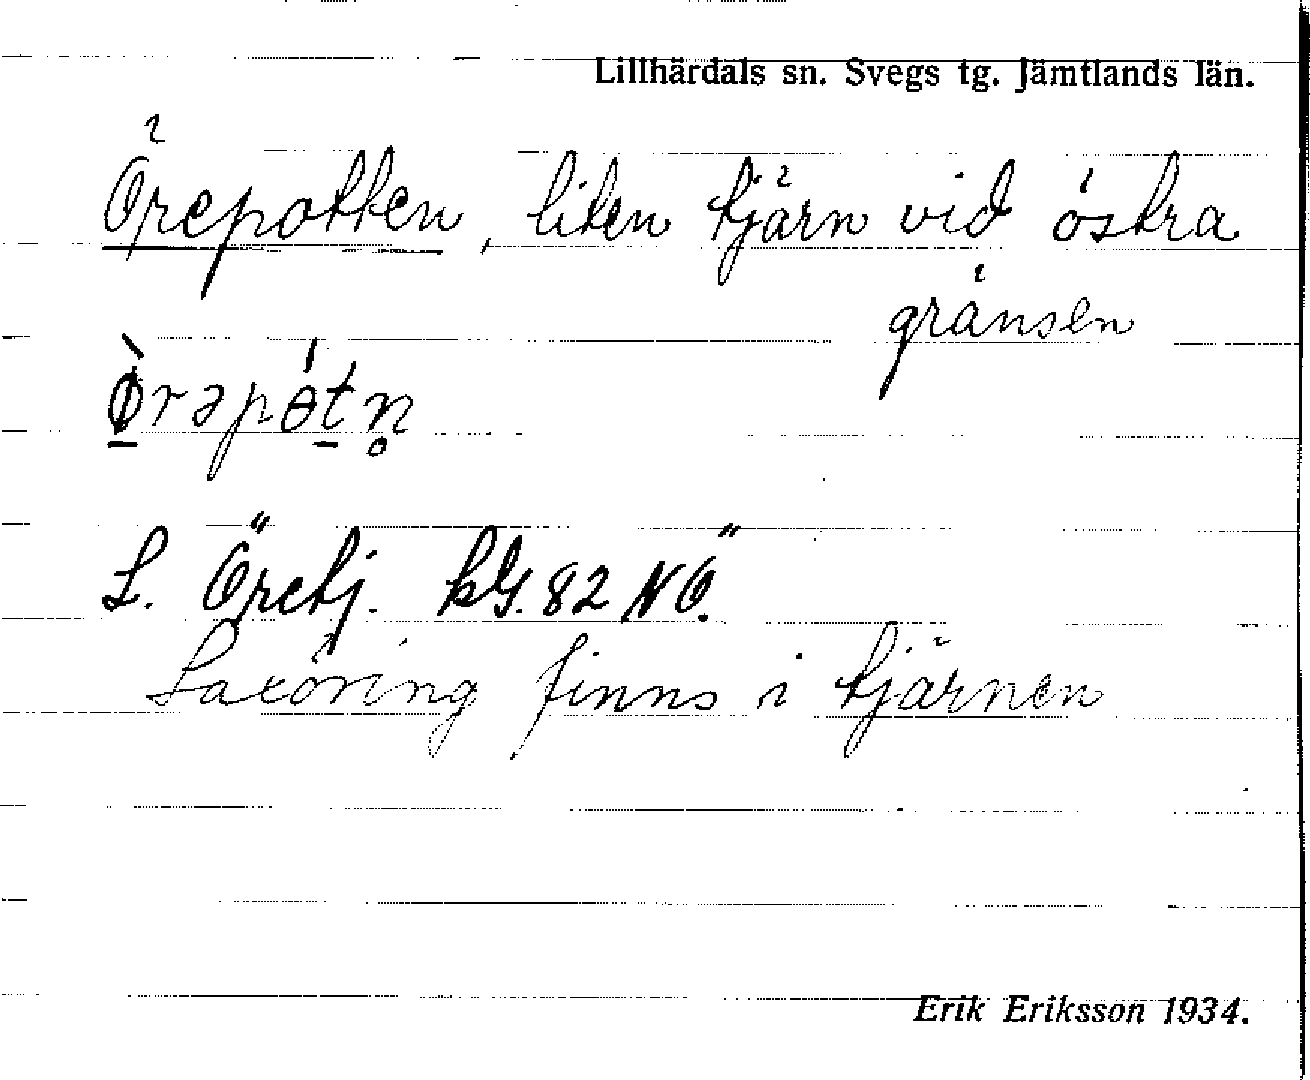 Lillhärdals sn. Svegs tg. Jämtlands län.
Örepotten, liten tjärn vid östra
gränsen
ø̀rəpɵ́tn̥
L. Öretj. kbl. 82 NÖ.
Laxöring finns i tjärnen
Erik Eriksson 1934.